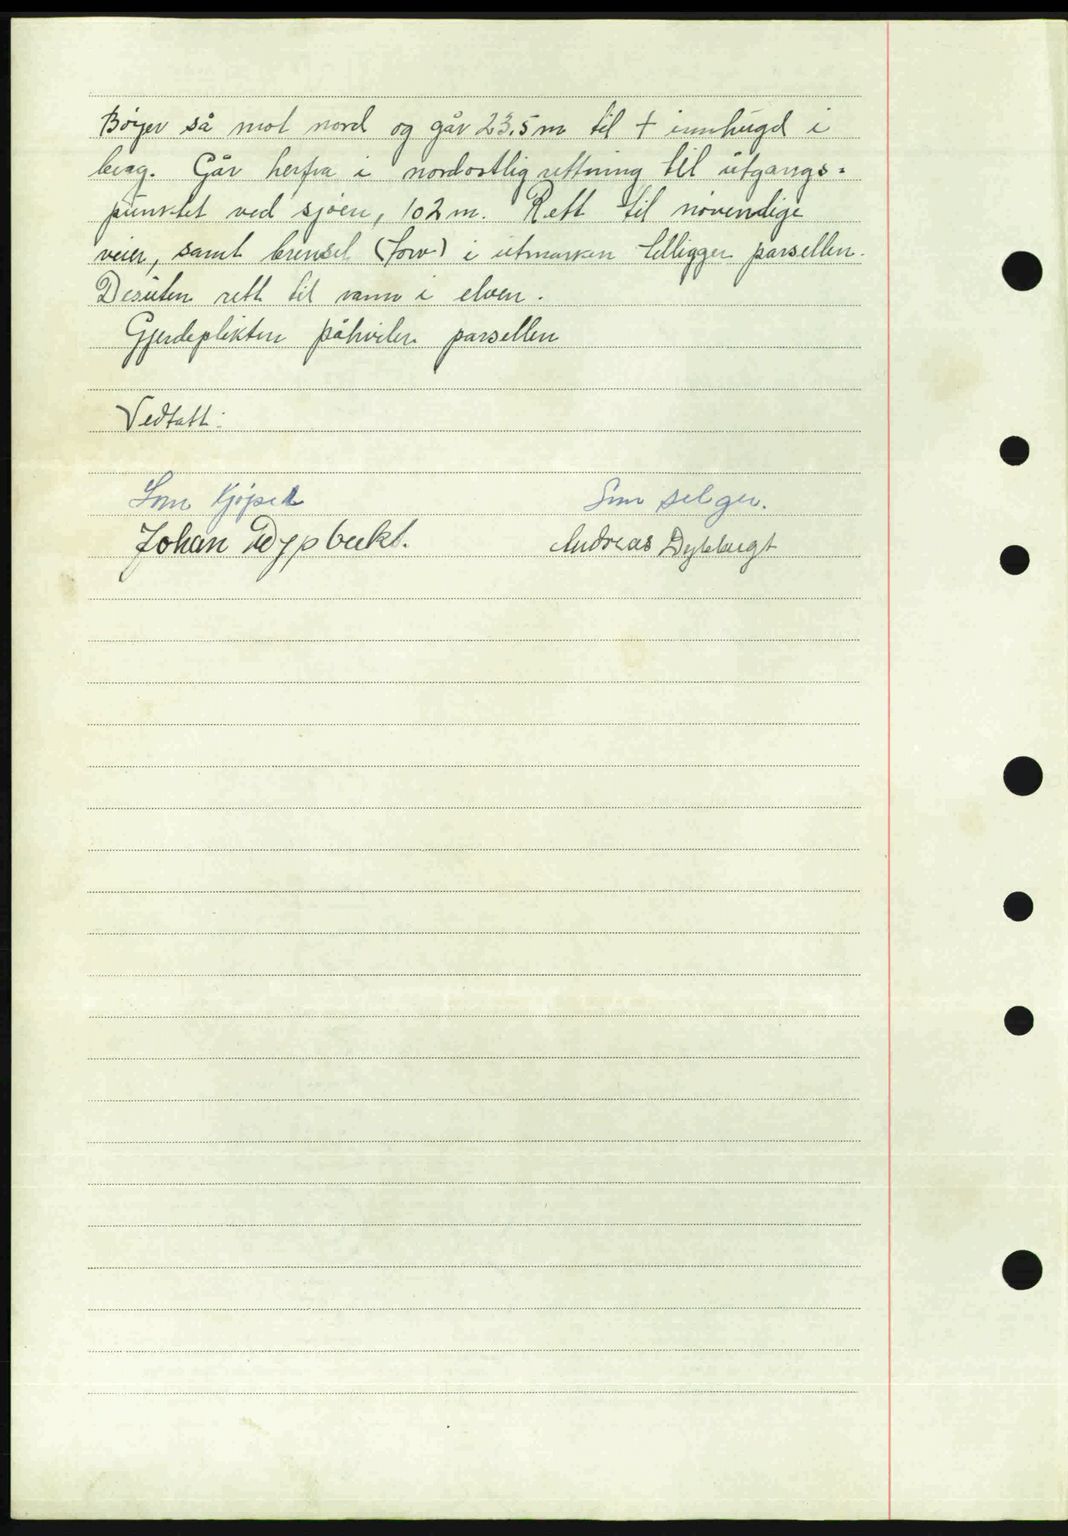 Bøyer så mot nord og går 23,5 m til + innhugd i
berg. Går herfra i nordostlig rettning til utgangs=
punktet ved sjøen, 102 m. Rett til nøvendige
veier, samt brensel (torv) i utmarken tilligger parsellen.
Desuten rett til vann i elven.
Gjerdeplikten påhviler parsellen
Vedtatt:
Som kjøper Som selger.
Johan Dypbukt. Andreas Dypbugt